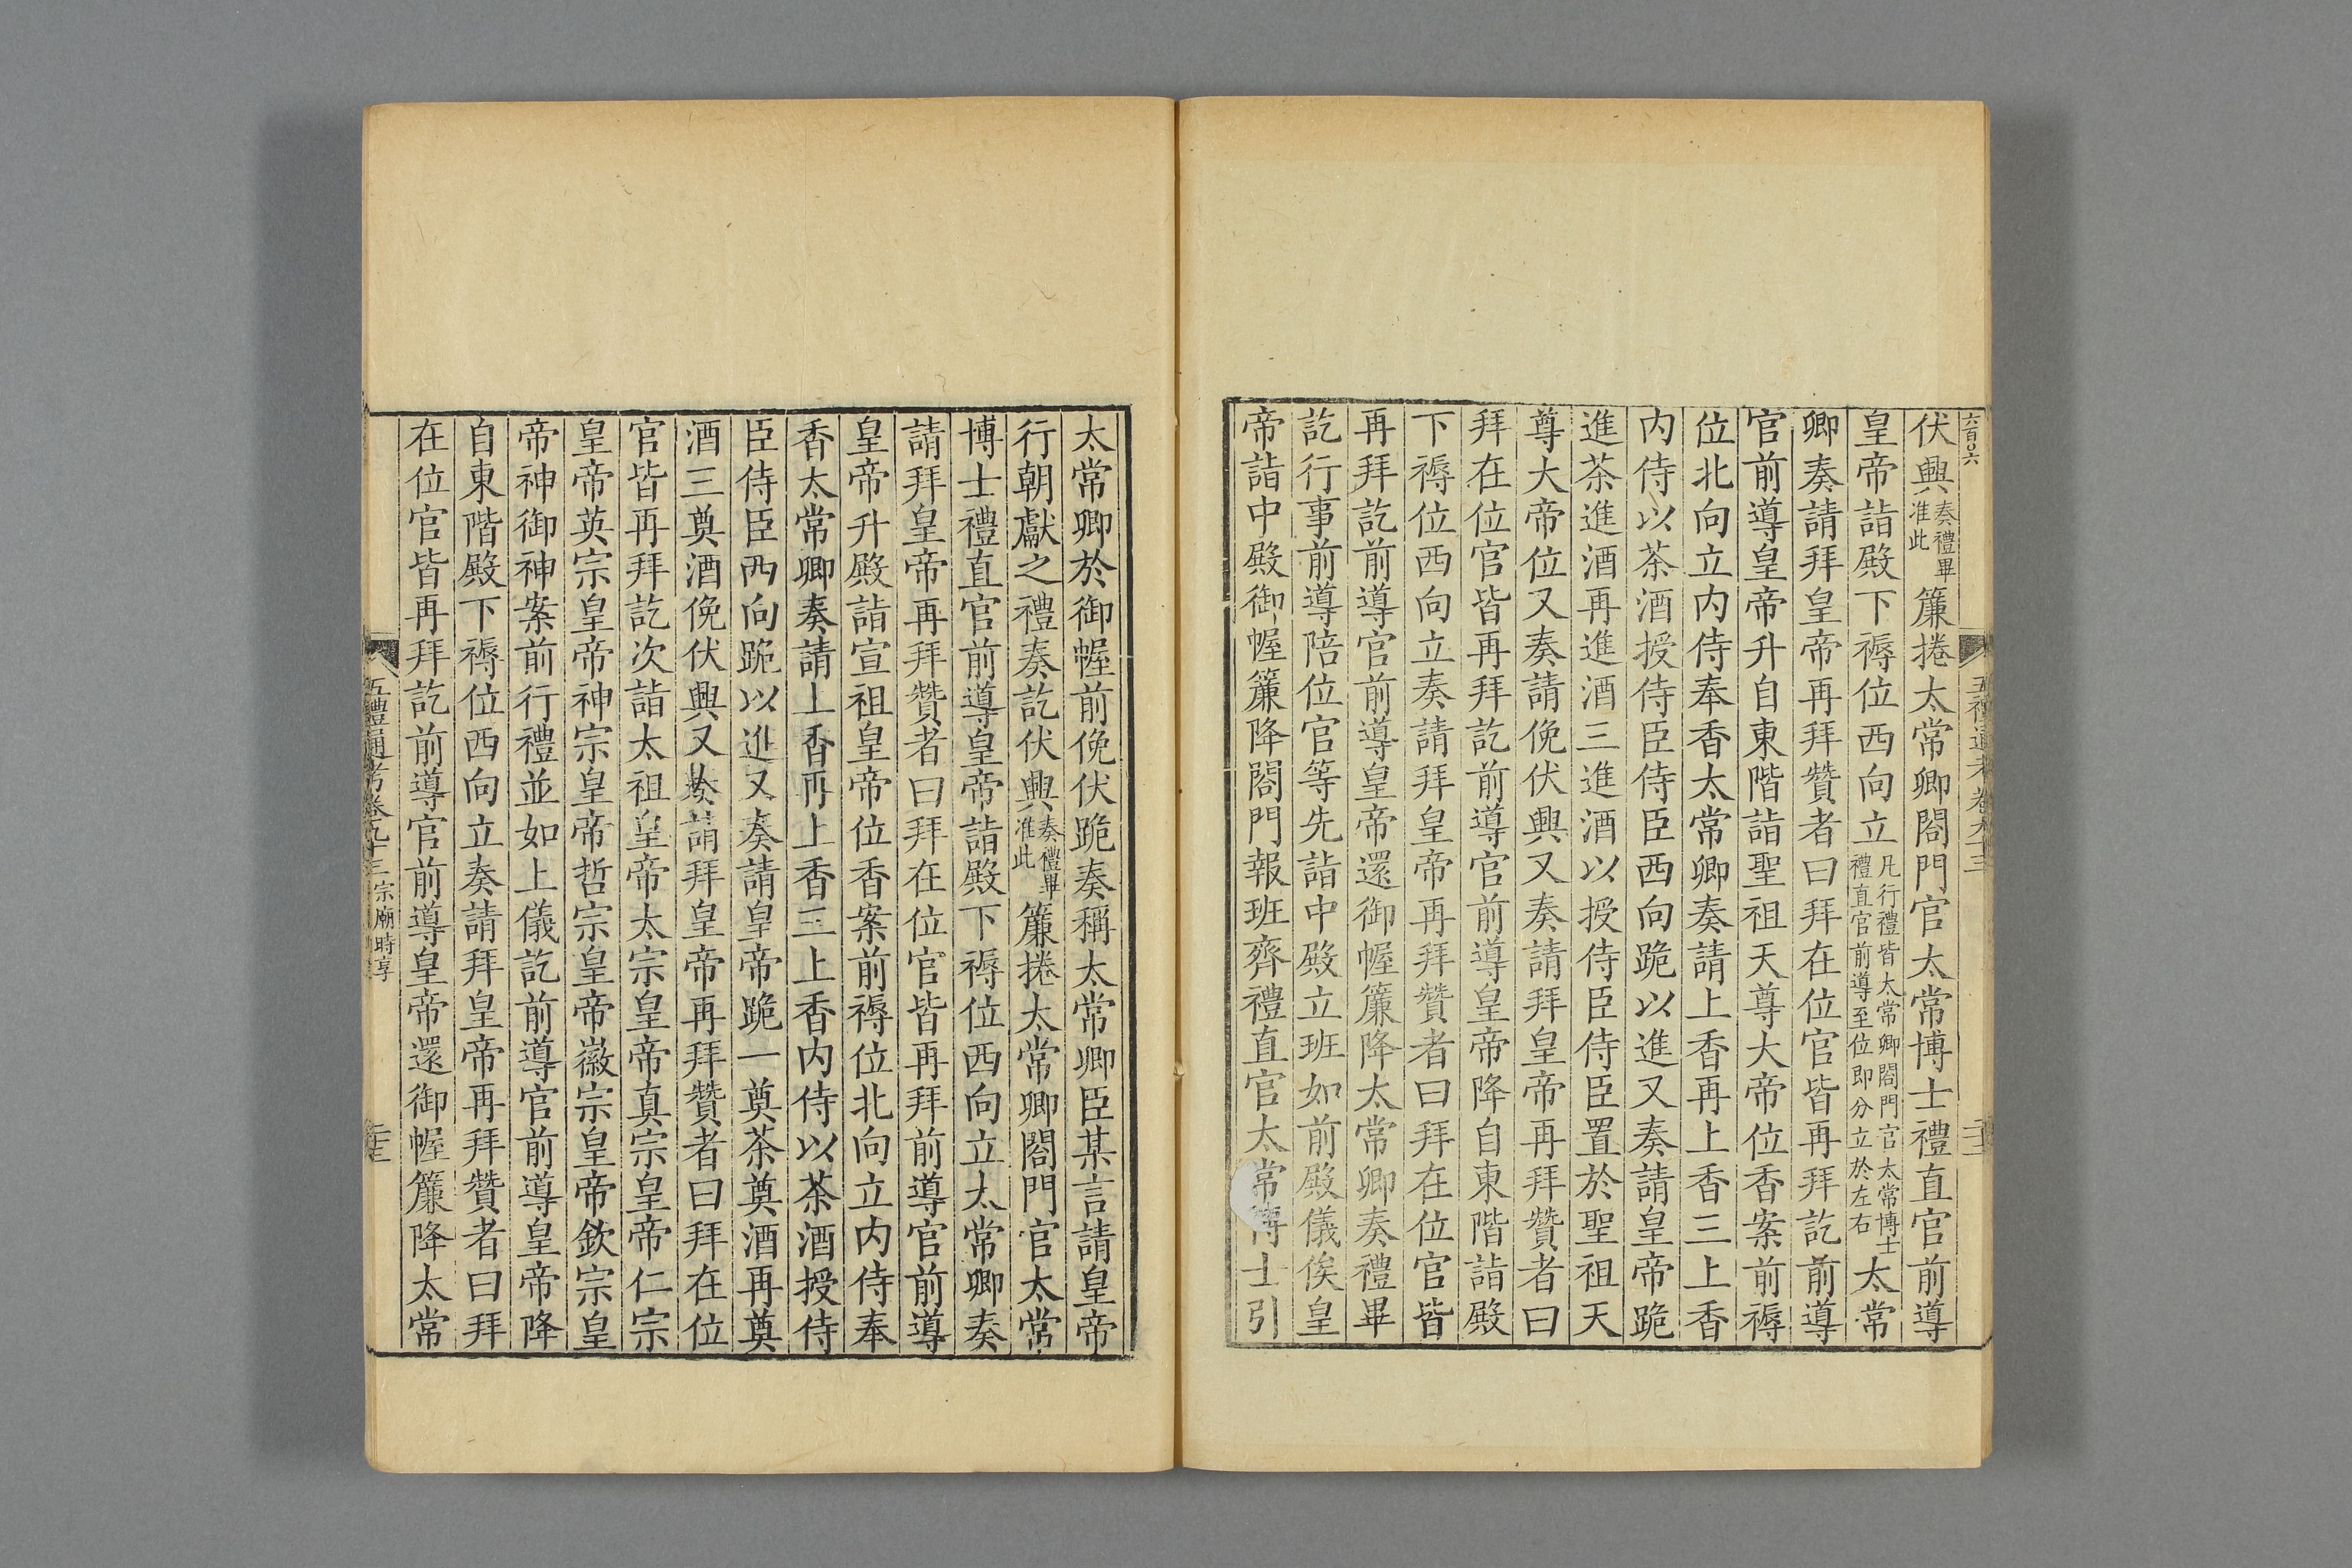 六百〇六
五禮通考卷九十三
伏興奏禮畢准此簾捲太常卿閤門官太常博士禮直官前導
皇帝詣殿下褥位西向立凡行禮皆太常卿閤門官太常博士禮直官前導至位卽分立於左右太常
卿奏請拜皇帝再拜贊者曰拜在位官皆再拜訖前導
官前導皇帝升自東階詣聖祖天尊大帝位香案前褥
位北向立內侍奉香太常卿奏請上香再上香三上香
內侍以茶酒授侍臣侍臣西向跪以進又奏請皇帝跪
進茶進酒再進酒三進酒以授侍臣侍臣置於聖祖天
尊大帝位又奏請俛伏興又奏請拜皇帝再拜贊者曰
拜在位官皆再拜訖前導官前導皇帝降自東階詣殿
下褥位西向立奏請拜皇帝再拜贊者曰拜在位官皆
再拜訖前導官前導皇帝還御幄簾降太常卿奏禮畢
訖行事前導陪位官等先詣中殿立班如前殿儀俟皇
帝詣中殿御幄簾降閤門報班齊禮直官太常博士引
太常卿於御幄前俛伏跪奏稱太常卿臣某言請皇帝
行朝獻之禮奏訖伏興奏禮畢准此簾捲太常卿閤門官太常
博士禮直官前導皇帝詣殿下褥位西向立太常卿奏
請拜皇帝再拜贊者曰拜在位官皆再拜前導官前導
皇帝升殿詣宣祖皇帝位香案前褥位北向立內侍奉
香太常卿奏請上香再上香三上香內侍以茶酒授侍
臣侍臣西向跪以進又奏請皇帝跪一奠茶奠酒再奠
酒三奠酒俛伏興又奏請拜皇帝再拜贊者曰拜在位
官皆再拜訖次詣太祖皇帝太宗皇帝真宗皇帝仁宗
皇帝英宗皇帝神宗皇帝哲宗皇帝徽宗皇帝欽宗皇
帝神御神案前行禮並如上儀訖前導官前導皇帝降
自東階殿下褥位西向立奏請拜皇帝再拜贊者曰拜
在位官皆再拜訖前導官前導皇帝還御幄簾降太常
五禮通考卷九十三 宗廟時享